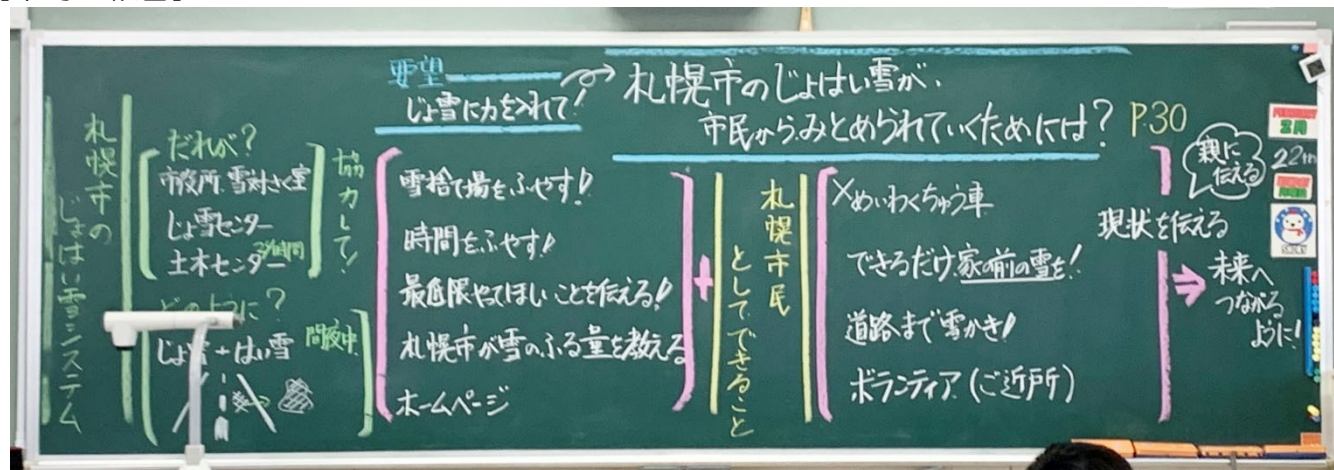 札幌市の
じょはい雪システム
だれが?
市役所.雪対さく室
じょ雪センター
土木センター
24時間
協力して!
どのように?
じょ雪+はい雪
要望
じょ雪に力を入れて!
札幌市のじょはい雪が、
市民からみとめられていくためには? P.30
雪捨て場をふやす!
時間をふやす!
最低限やってほしいことを伝える!
札幌市が雪のふる量を教える
ホームページ
+
札幌市民
としてできること
×めいわくちゅう車
できるだけ家の前の雪を!
道路まで雪かき!
ボランティア(ご近所)
親に
伝える
現状を伝える
未来へ
つながる
ように!
2月
22